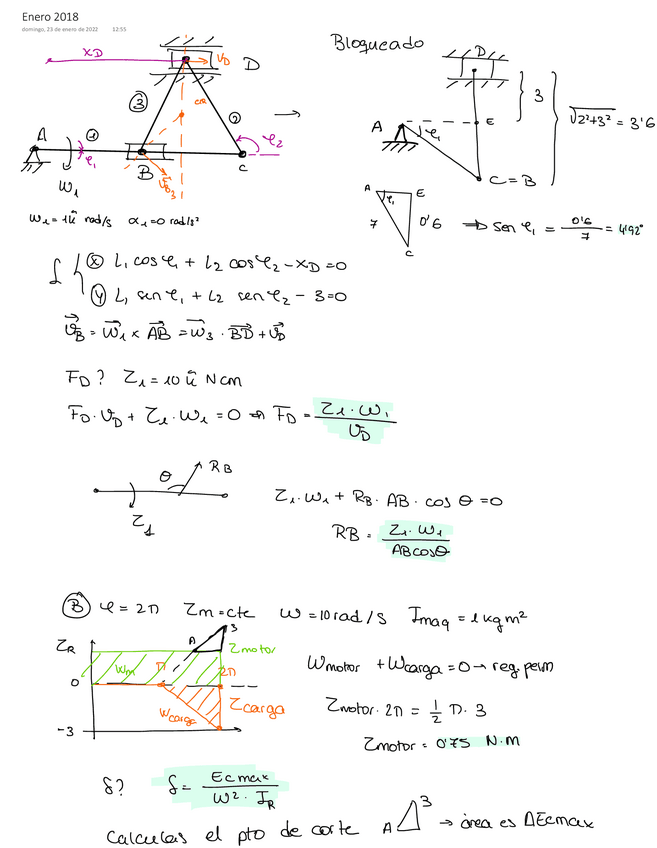 Enero 2018
domingo, 23 de enero de 2022 12:55
Bloqueado
x_D
v_D
D
3
2
A
1
φ_1
φ_2
B
C
v_B3
ω_1
D
3
√(2²+3²) = 3'6
A
φ_1
E
C = B
A
φ_1
E
7
0'6
C
⇒ sen φ_1 = 0'6 / 7 = 4'92°
ω_1 = 1 û rad/s α_1 = 0 rad/s²
(x) L_1 cos φ_1 + L_2 cos φ_2 - x_D = 0
(y) L_1 sen φ_1 + L_2 sen φ_2 - 3 = 0
v_B = ω_1 x AB = ω_3 · BD + v_D
F_D? Z_1 = 10 û N cm
F_D · v_D + Z_1 · ω_1 = 0 ⇒ F_D = Z_1 · ω_1 / v_D
θ
R_B
Z_1
Z_1 · ω_1 + R_B · AB · cos θ = 0
RB = Z_1 · ω_1 / AB cos θ
(B) φ = 2π Zm = cte ω = 10 rad/s I_maq = 1 kg m²
Z_R
A
3
Zmotor
Wm
π
2π
0
Wcarga
Zcarga
-3
Wmotor + Wcarga = 0 → reg. perm
Zmotor · 2π = 1/2 π · 3
Zmotor = 0'75 N·m
δ? δ = Ecmax / ω² · I_R
Calculas el pto de corte A 3 → área es ΔEcmax